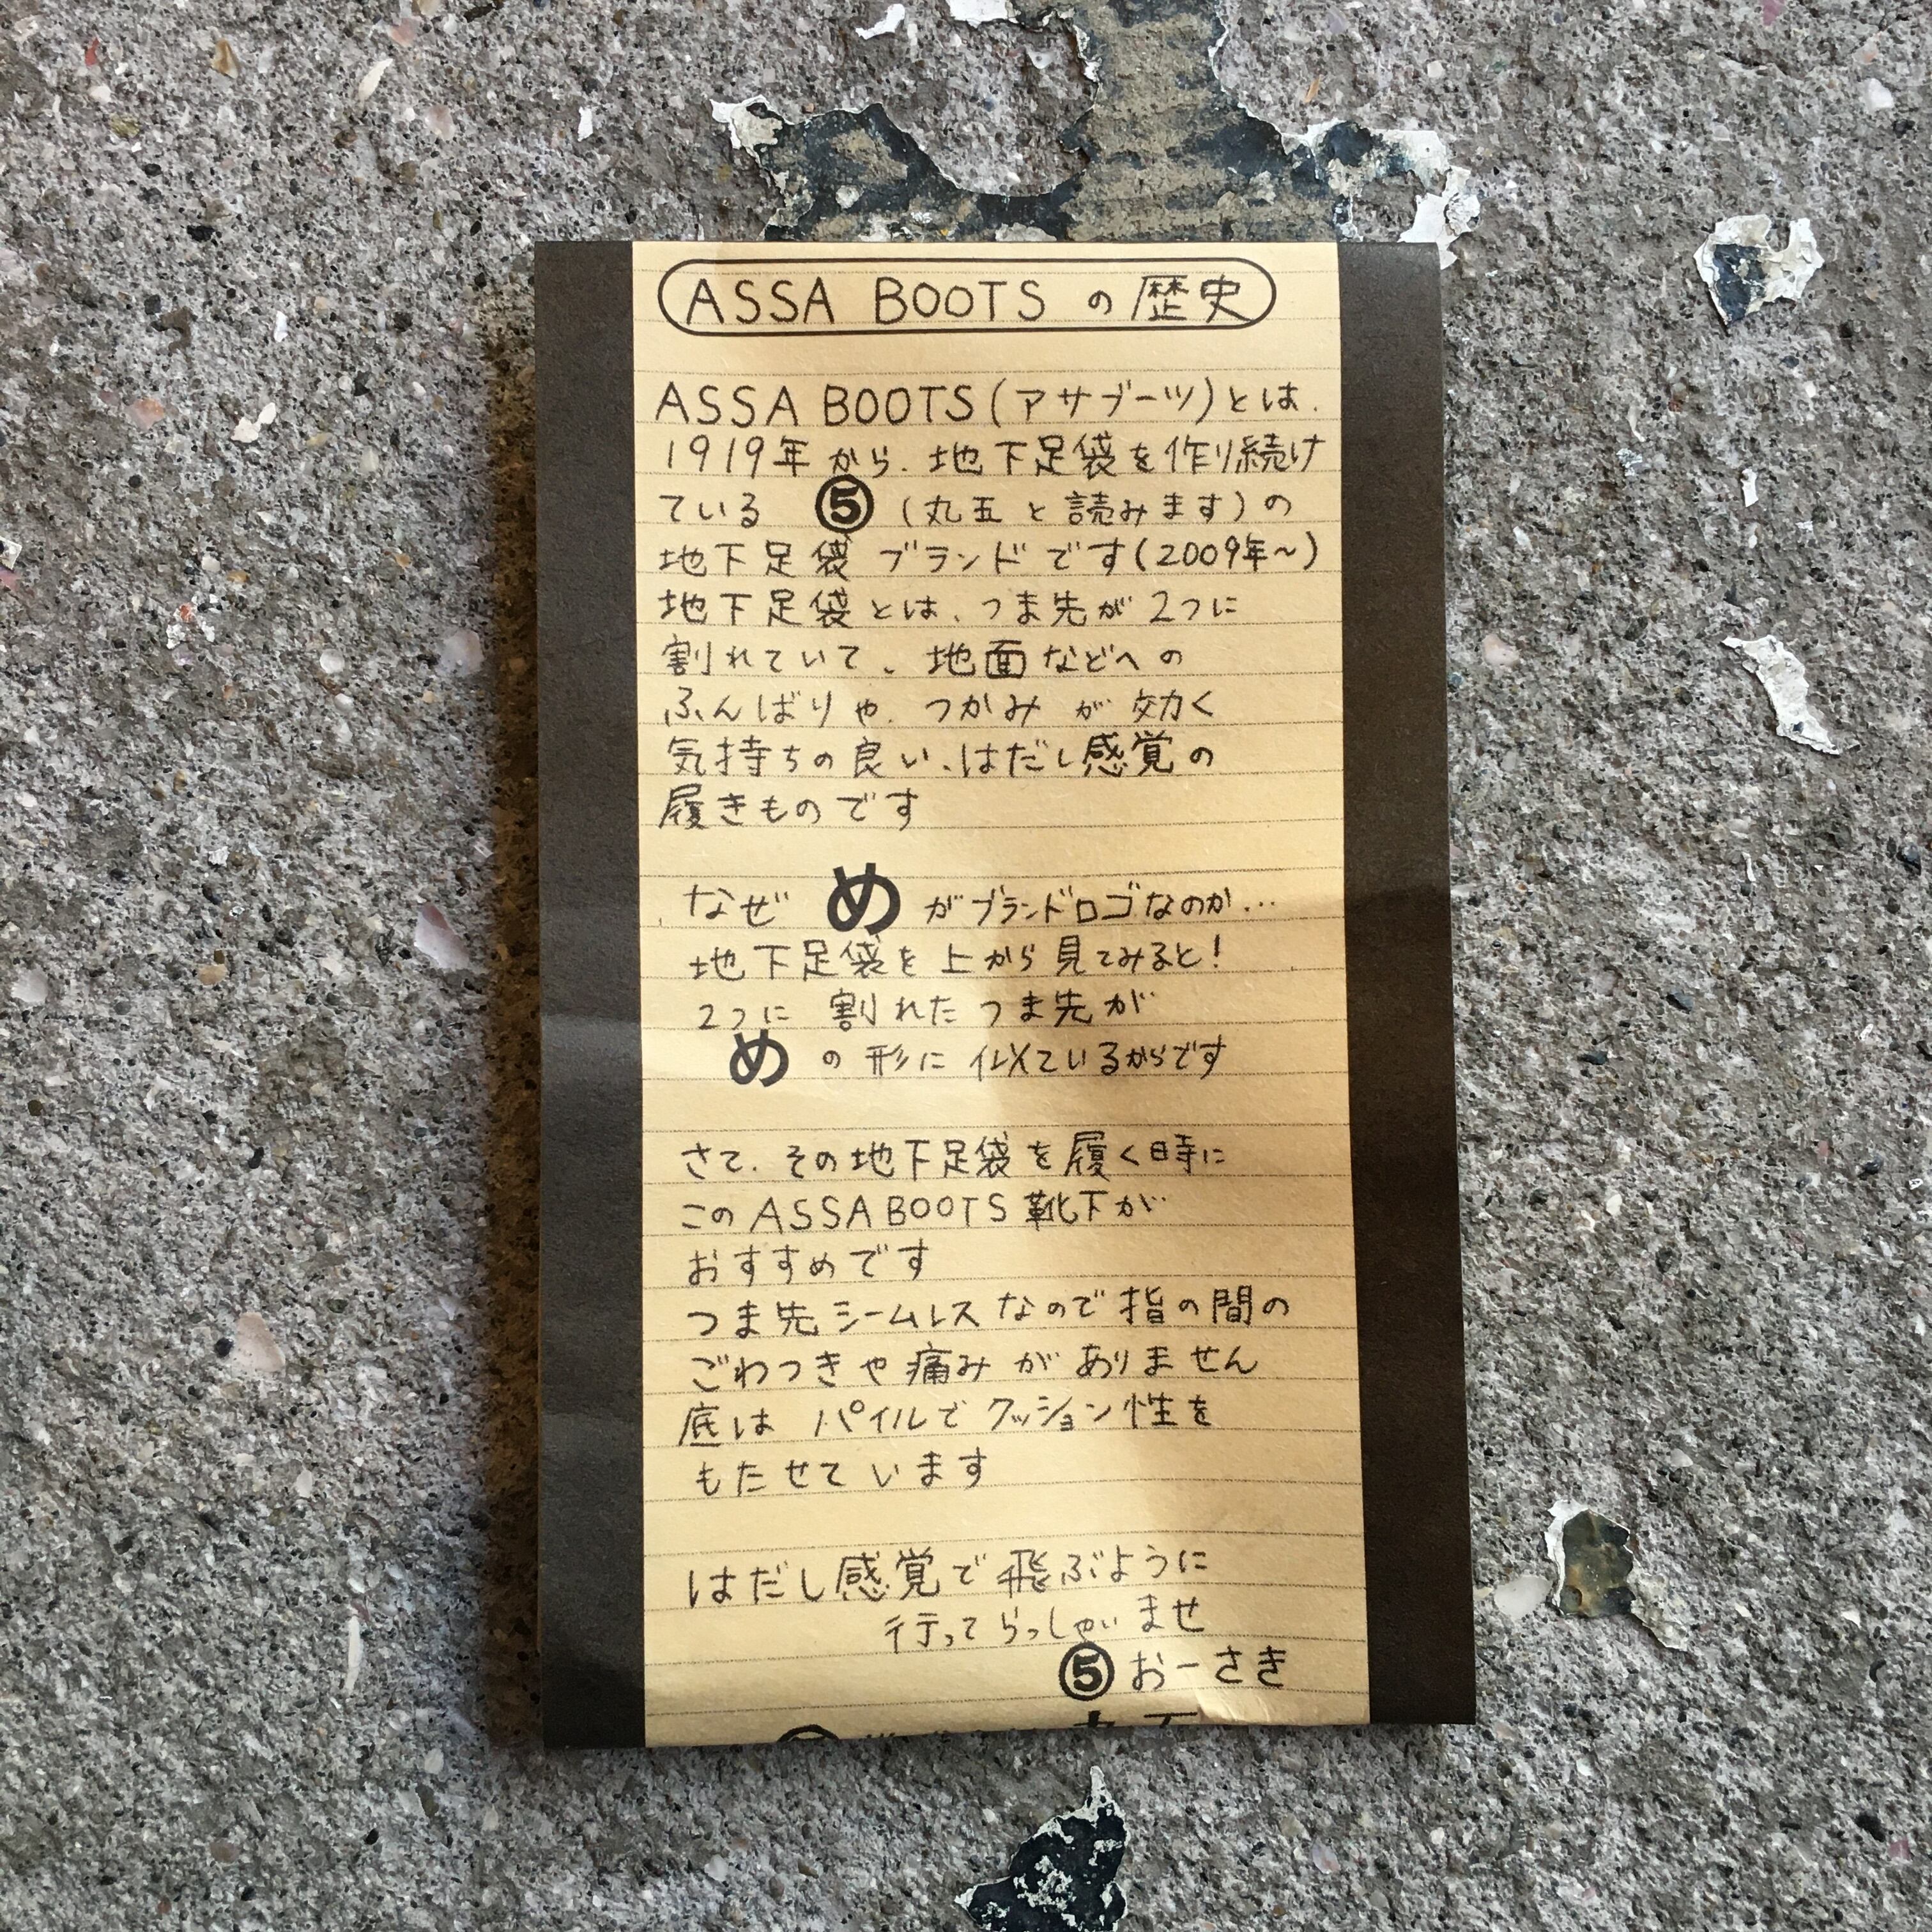 ASSA BOOTS の歴史
ASSA BOOTS(アサブーツ)とは、
1919年から、地下足袋を作り続け
ている ⑤ (丸五と読みます)の
地下足袋ブランドです(2009年~)
地下足袋とは、つま先が2つに
割れていて、地面などへの
ふんばりや、つかみが効く
気持ちの良い、はだし感覚の
履きものです
なぜ め がブランドロゴなのか…
地下足袋を上から見てみると!
2つに割れたつま先が
め の形に似ているからです
さて、その地下足袋を履く時に
このASSA BOOTS靴下が
おすすめです
つま先シームレスなので指の間の
ごわつきや痛みがありません
底はパイルでクッション性を
もたせています
はだし感覚で飛ぶように
行ってらっしゃいませ
⑤おーさき